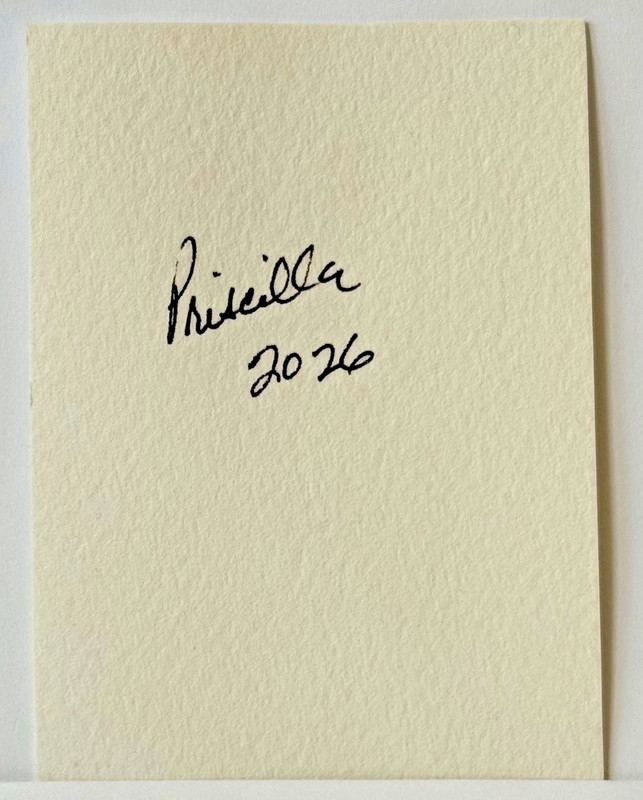 Priscilla
2026